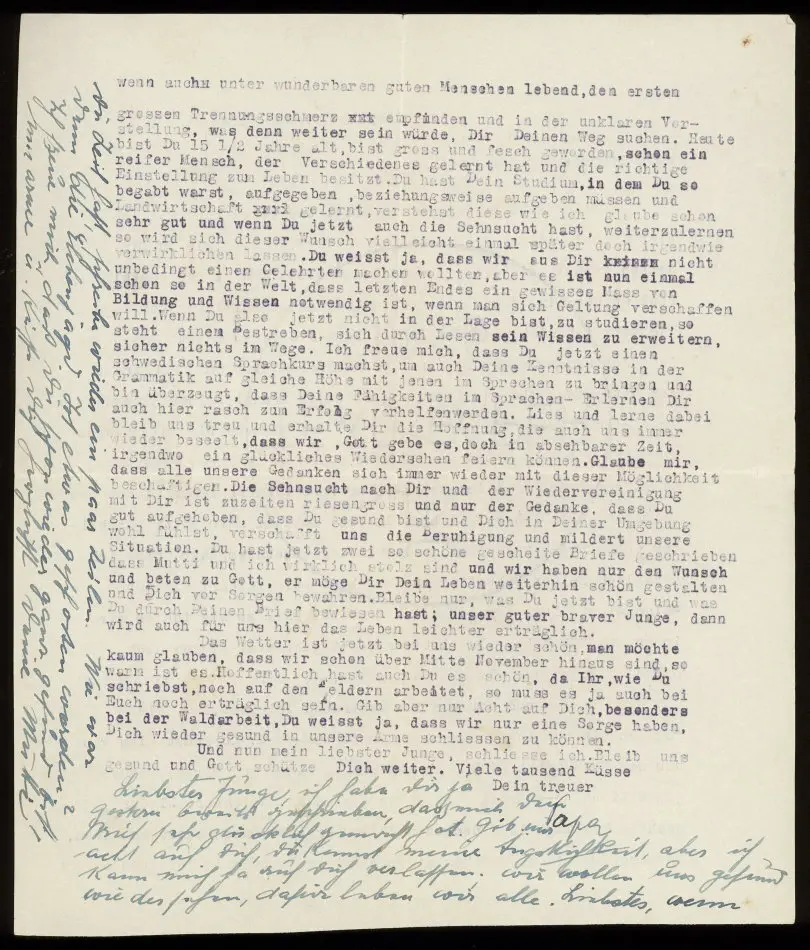 wenn auchx unter wunderbaren guten Menschen lebend,den ersten
grossen Trennungsschmerz xxt empfinden und in der unklaren Vor-
stellung, was denn weiter sein würde, Dir Deinen Weg suchen. Heute
bist Du 15 1/2 Jahre alt,bist gross und fesch geworden,schon ein
reifer Mensch, der Verschiedenes gelernt hat und die richtige
Einstellung zum Leben besitzt.Du hast Dein Studium,in dem Du so
begabt warst, aufgegeben ,beziehungsweise aufgeben müssen und
Landwirtschaft gelernt,verstehst diese wie ich glaube schon
sehr gut und wenn Du jetzt auch die Sehnsucht hast, weiterzulernen
so wird sich dieser Wunsch vielleicht einmal später doch irgendwie
verwirklichen lassen.Du weisst ja, dass wir aus Dir nicht
unbedingt einen Gelehrten machen wollten,aber es ist nun einmal
schon so in der Welt,dass letzten Endes ein gewisses Mass von
Bildung und Wissen notwendig ist, wenn man sich Geltung verschaffen
will.Wenn Du also jetzt nicht in der Lage bist,zu studieren,so
steht einem Bestreben, sich durch Lesen sein Wissen zu erweitern,
sicher nichts im Wege. Ich freue mich, dass Du jetzt einen
schwedischen Sprachkurs machst,um auch Deine Kenntnisse in der
Grammatik auf gleiche Höhe mit jenen im Sprechen zu bringen und
bin überzeugt, dass Deine Fähigkeiten im Sprachen- Erlernen Dir
auch hier rasch zum Erfolg verhelfenwerden. Lies und lerne dabei
bleib uns treu und erhalte Dir die Hoffnung,die auch uns immer
wieder beseelt,dass wir ,Gott gebe es,doch in absehbarer Zeit,
irgendwo ein glückliches Wiedersehen feiern können.Glaube mir,
dass alle unsere Gedanken sich immer wieder mit dieser Möglichkeit
beschäftigen.Die Sehnsucht nach Dir und der Wiedervereinigung
mit Dir ist zuzeiten riesengross und nur der Gedanke, dass Du
gut aufgehoben, dass Du gesund bist und Dich in Deiner Umgebung
wohl fühlst, verschafft uns die Beruhigung und mildert unsere
Situation. Du hast jetzt zwei so schöne gescheite Briefe geschrieben
dass Mutti und ich wirklich stolz sind und wir haben nur den Wunsch
und beten zu Gott, er möge Dir Dein Leben weiterhin schön gestalten
und Dich vor Sorgen bewahren.Bleibe nur, was Du jetzt bist und was
Du durch Deinen Brief bewiesen hast; unser guter braver Junge, dann
wird auch für uns hier das Leben leichter erträglich.
Das Wetter ist jetzt bei uns wieder schön,man möchte
kaum glauben, dass wir schon über Mitte November hinaus sind,so
warm ist es.Hoffentlich hast auch Du es schön, da Ihr,wie Du
schriebst,noch auf den Feldern arbeitet, so muss es ja auch bei
Euch noch erträglich sein. Gib aber nur Acht auf Dich,besonders
bei der Waldarbeit,Du weisst ja, dass wir nur eine Sorge haben,
Dich wieder gesund in unsere Arme schliessen zu können.
Und nun mein liebster Junge, schliesse ich.Bleib uns
gesund und Gott schütze Dich weiter. Viele tausend Küsse
Dein treuer
Papa
Liebster Junge, ich habe dir ja
gestern bereits geschrieben, dass mich dein
Brief sehr glücklich gemacht hat. Gib nur
acht auf dich, du kennst meine Ängstlichkeit, aber ich
kann mich ja auf dich verlassen. Wir wollen uns gesund
wiedersehen, dafür leben wir alle. Liebstes, wenn
du Zeit hast, schreibe wieder ein paar Zeilen. Wie war
denn die Ist etwas geschossen worden?
Ich freue mich, dass du schon wieder ganz gesund bist,
Deine Mutti